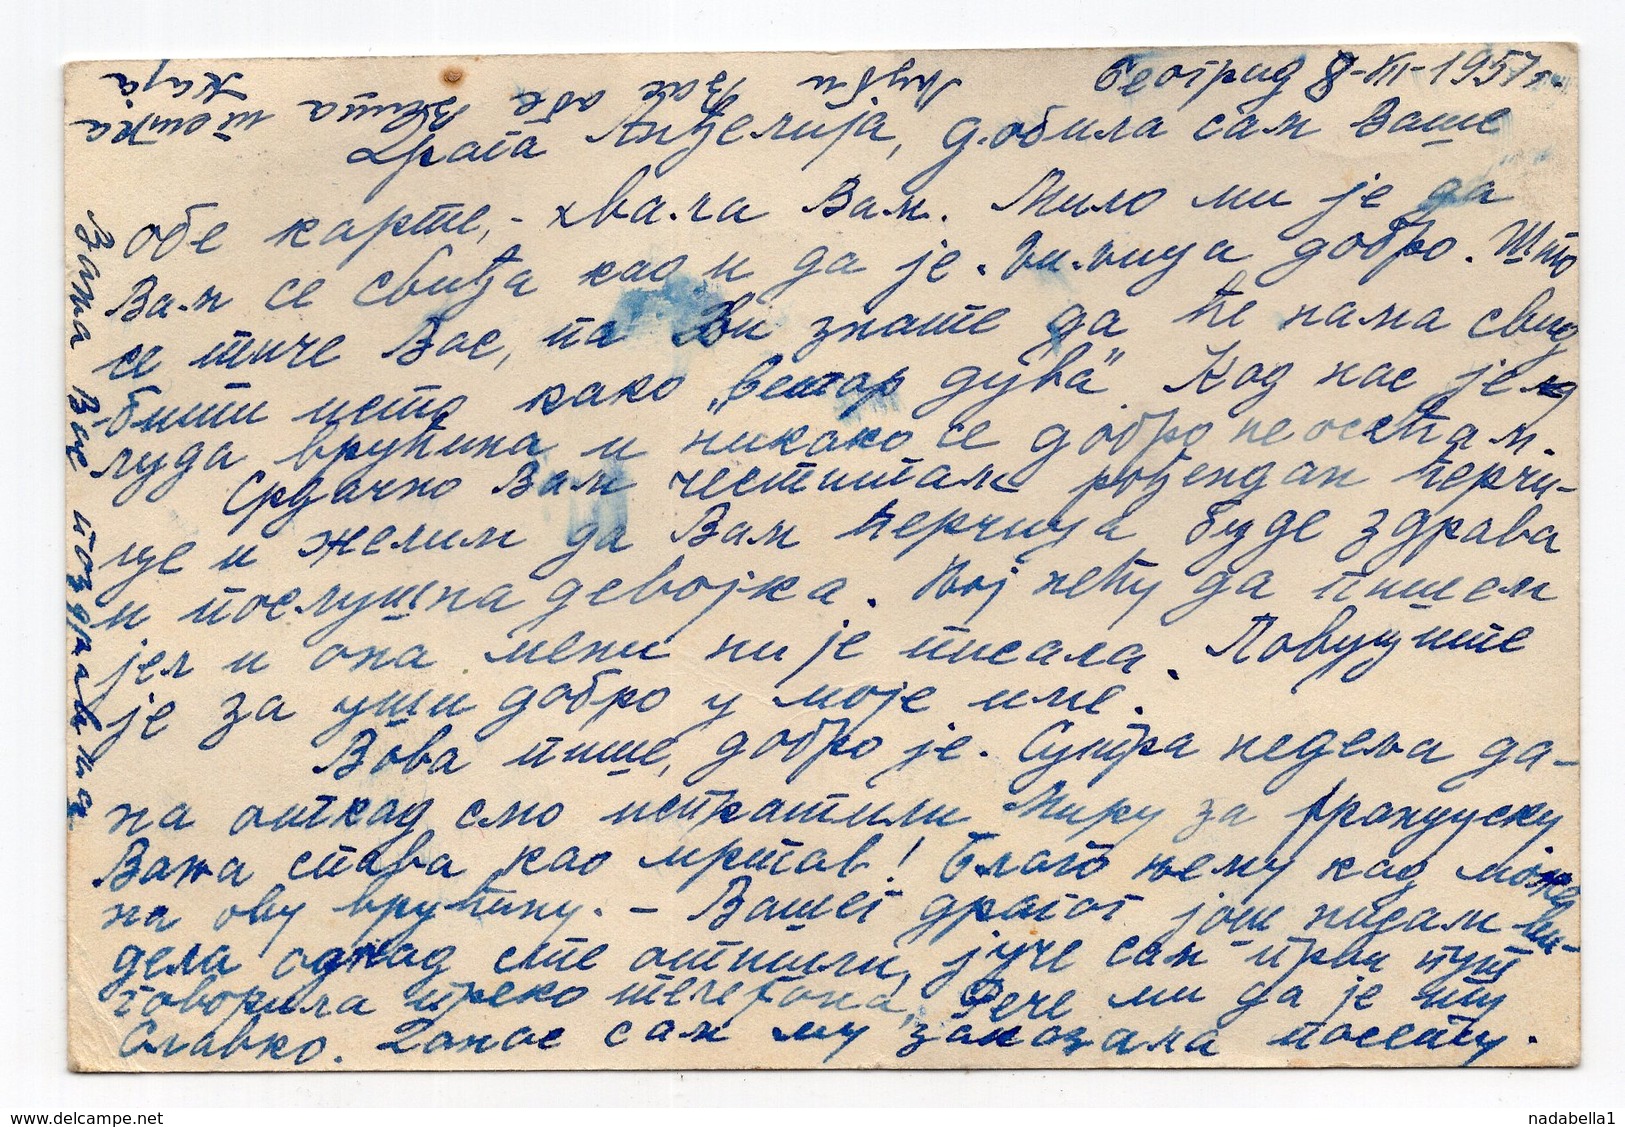 Београд 8-VII-1957 г.
Драга Анђелија, добила сам Ваше
обе карте, - хвала Вам. Мило ми је да
Вам се свиђа као и да је времена добро. Што
се тиче Вас, па Ви знате да ће нама свид
бити исто како „ветар дува“. Код нас је
луда врућина и никако се добро не осећам.
Срдачно Вам честитам рођендан ћерчи-
це и желим да Вам ћерчица буде здрава
и послушна девојка. Њој нећу да пишем
јер и она мени није писала. Повуците
је за уши добро у моје име.
Вова пише, добро је. Сутра недеља да-
на откад смо испратили Миру за Француску
Вања спава као мртав! Благо њему кад може
на ову врућину. - Вашег драгог још нисам ви-
дела откад сте отишли, јуче сам први пут
говорила преко телефона, Рече ми да је ту
Славко. Данас сам му заказала посету.
Зама Вас поздравља
Љуби Вас обе Ваша тетка
Каја
nadabella1